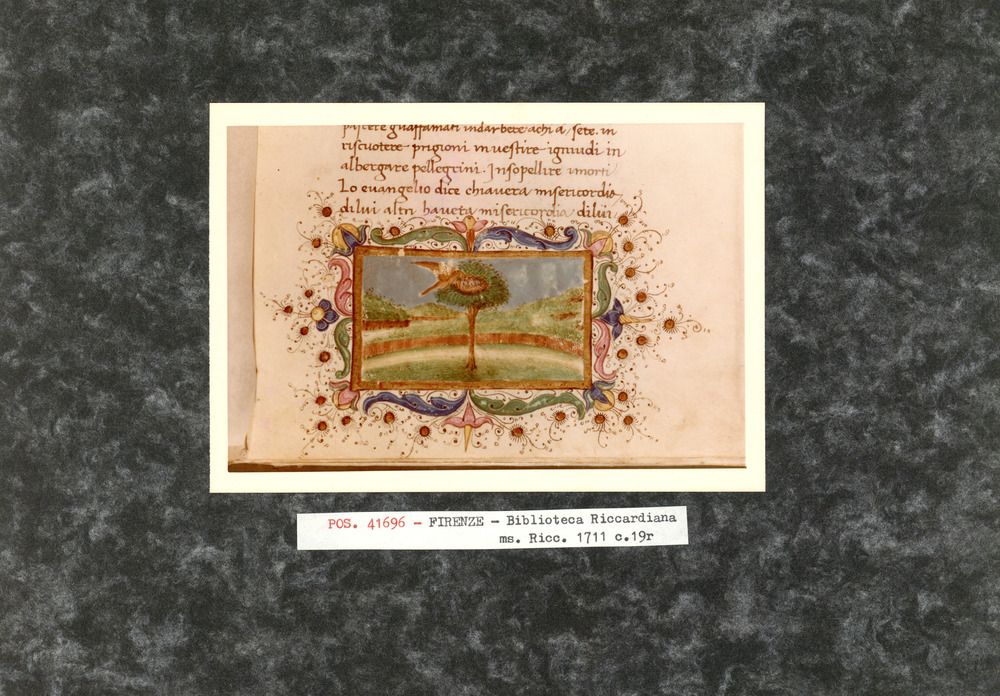 pascere gliaffamati indarbere achi a sete. in
riscuotere prigioni in vestire igniudi in
albergare pellegrini. Insopellire imorti
Lo euangelio dice chiauera misericordia
dilui altri hauera misericordia dilui
POS. 41696 - FIRENZE - Biblioteca Riccardiana
ms. Ricc. 1711 c.19r